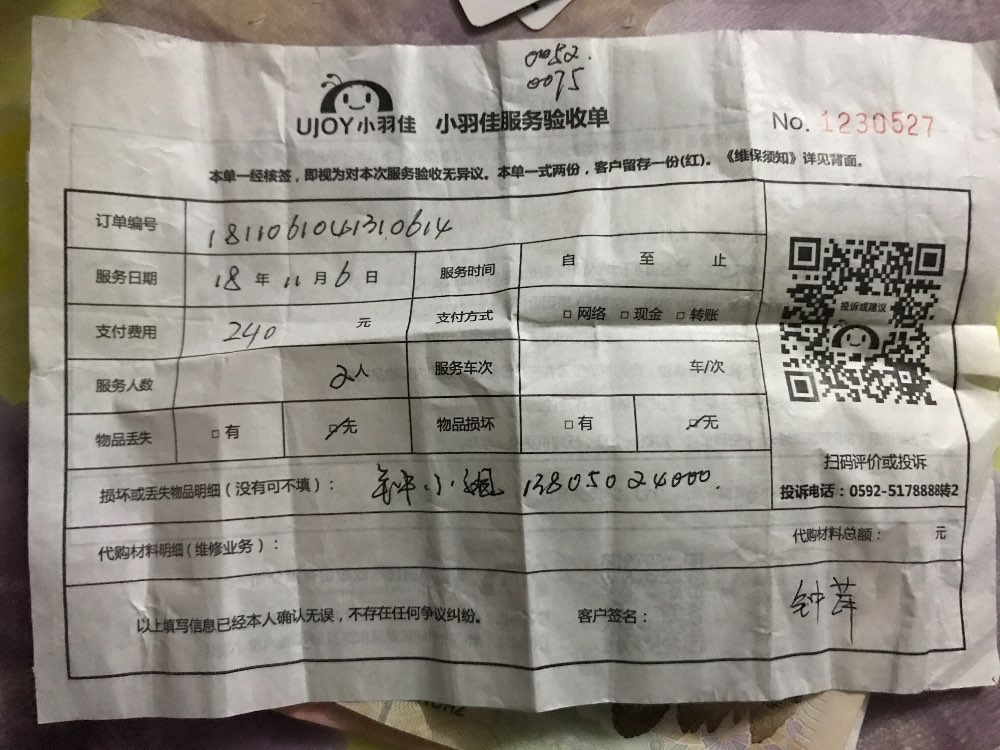 0052.
0075
UJOY小羽佳 小羽佳服务验收单
No. 1230527
本单一经核签，即视为对本次服务验收无异议。本单一式两份，客户留存一份(红)。《维保须知》详见背面。
订单编号 181106104131.0614
服务日期 18 年 11 月 6 日 服务时间 自 至 止
支付费用 240 元 支付方式 □ 网络 □ 现金 □ 转账
投诉或建议
服务人数 2人 服务车次 车/次
物品丢失 □ 有 ☑ 无 物品损坏 □ 有 ☑ 无
扫码评价或投诉
投诉电话：0592-5178888转2
损坏或丢失物品明细（没有可不填）： 钟小 13805024000.
代购材料明细（维修业务）： 代购材料总额： 元
以上填写信息已经本人确认无误，不存在任何争议纠纷。 客户签名： 钟